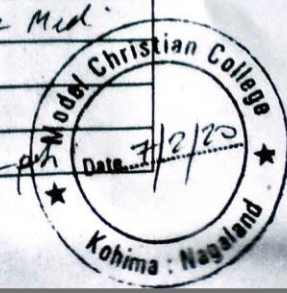 Med.
Model Christian College
Date 7/2/20
Kohima : Nagaland